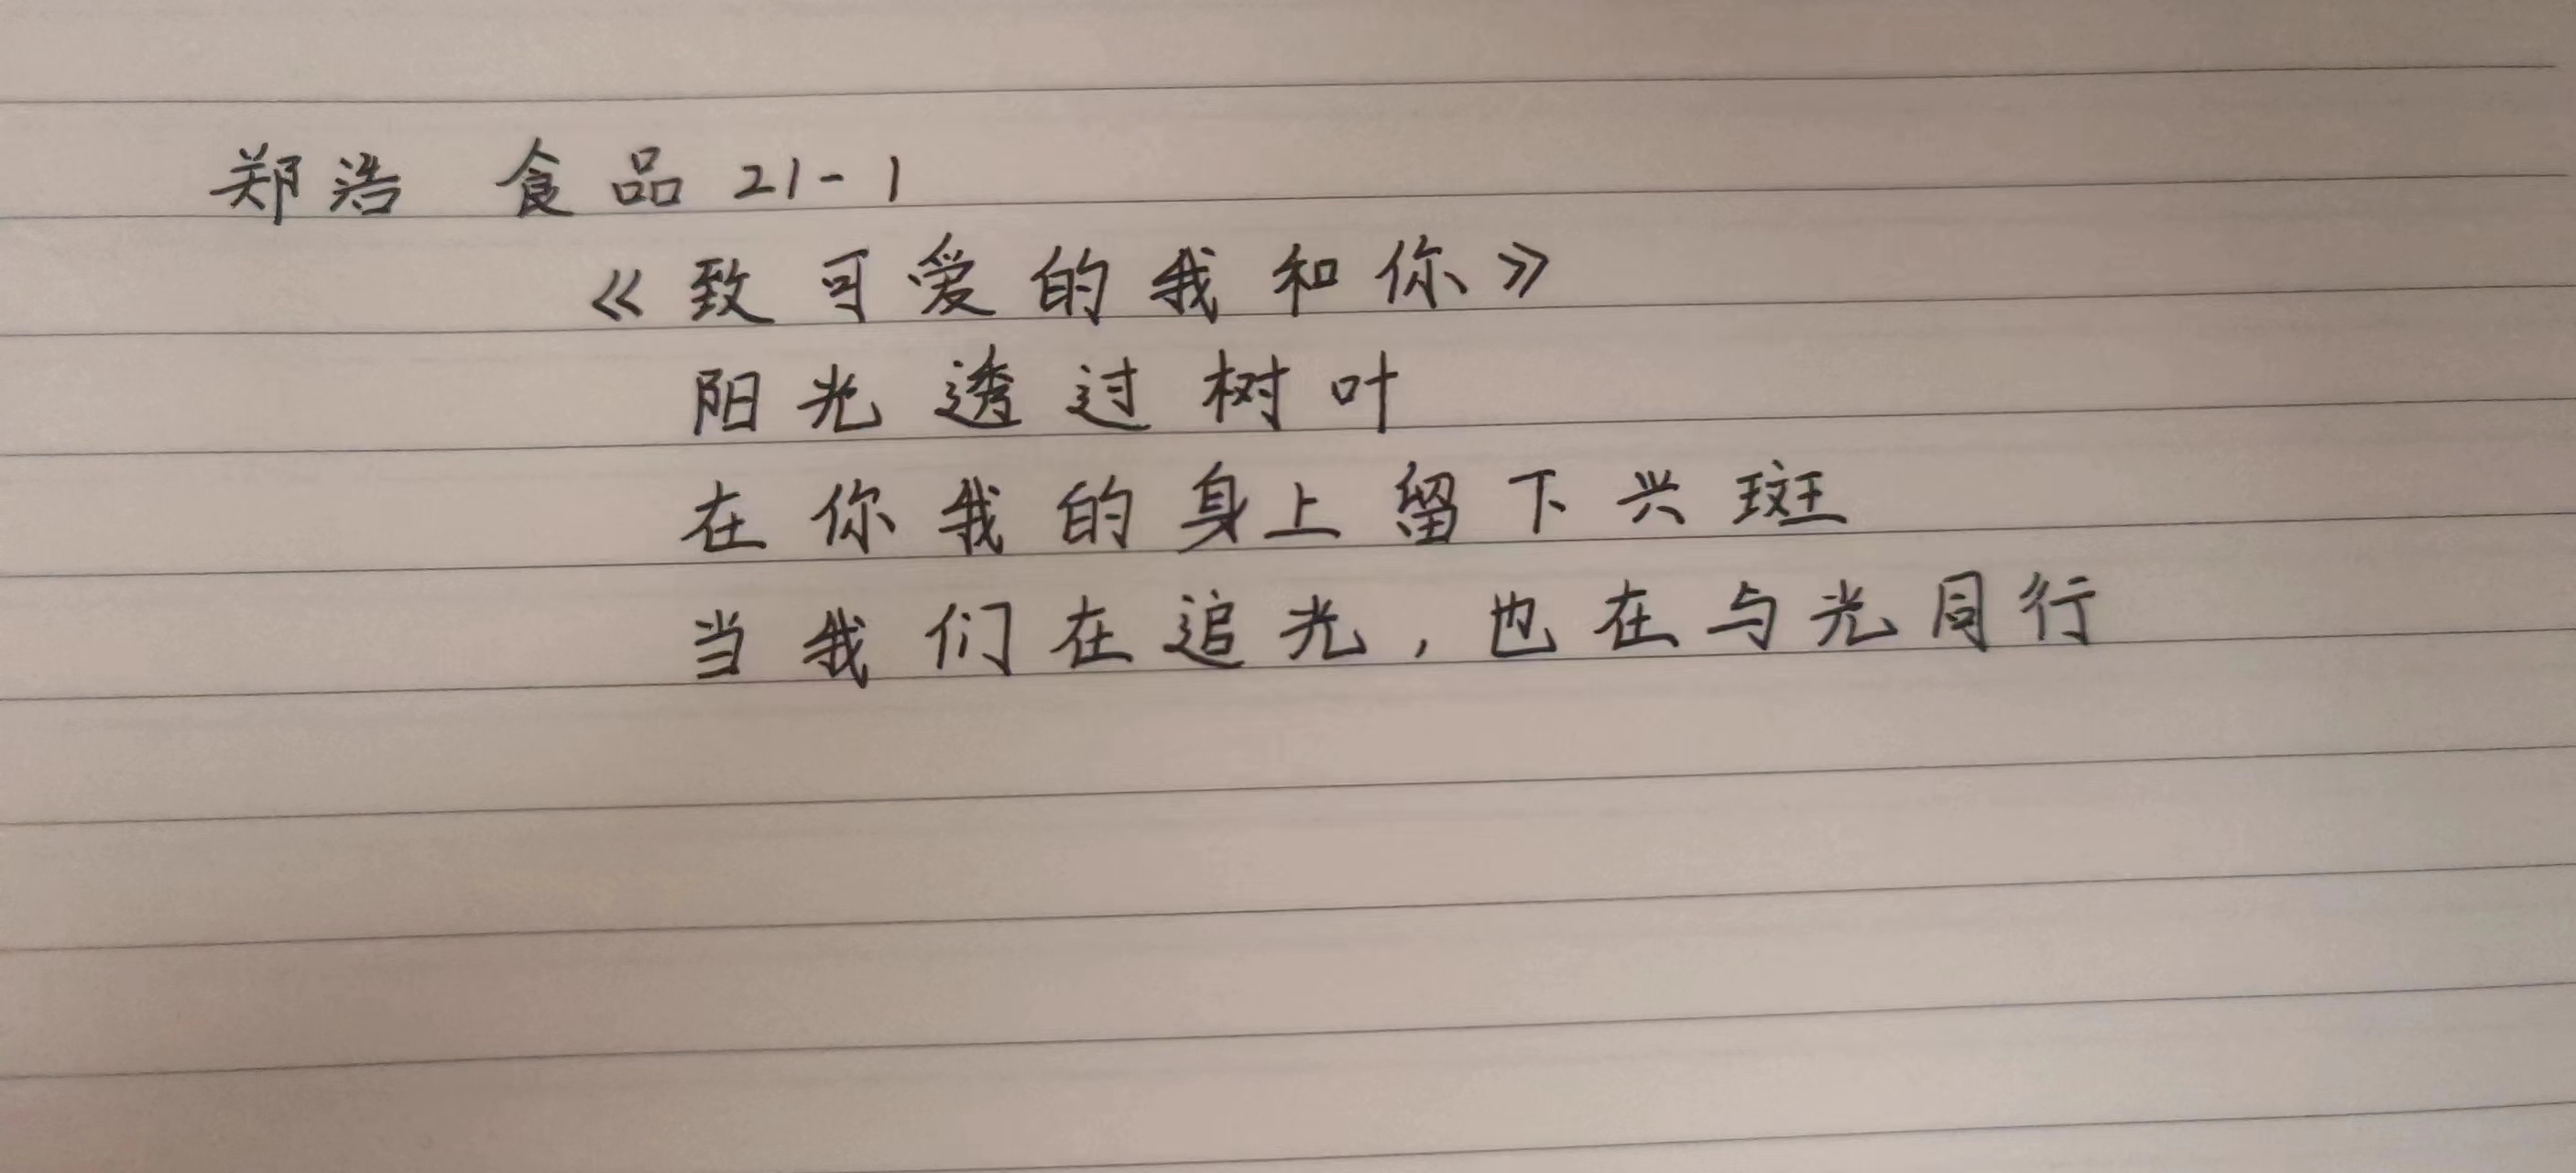 郑浩 食品21-1
《致可爱的我和你》
阳光透过树叶
在你我的身上留下兴斑
当我们在追光，也在与光同行